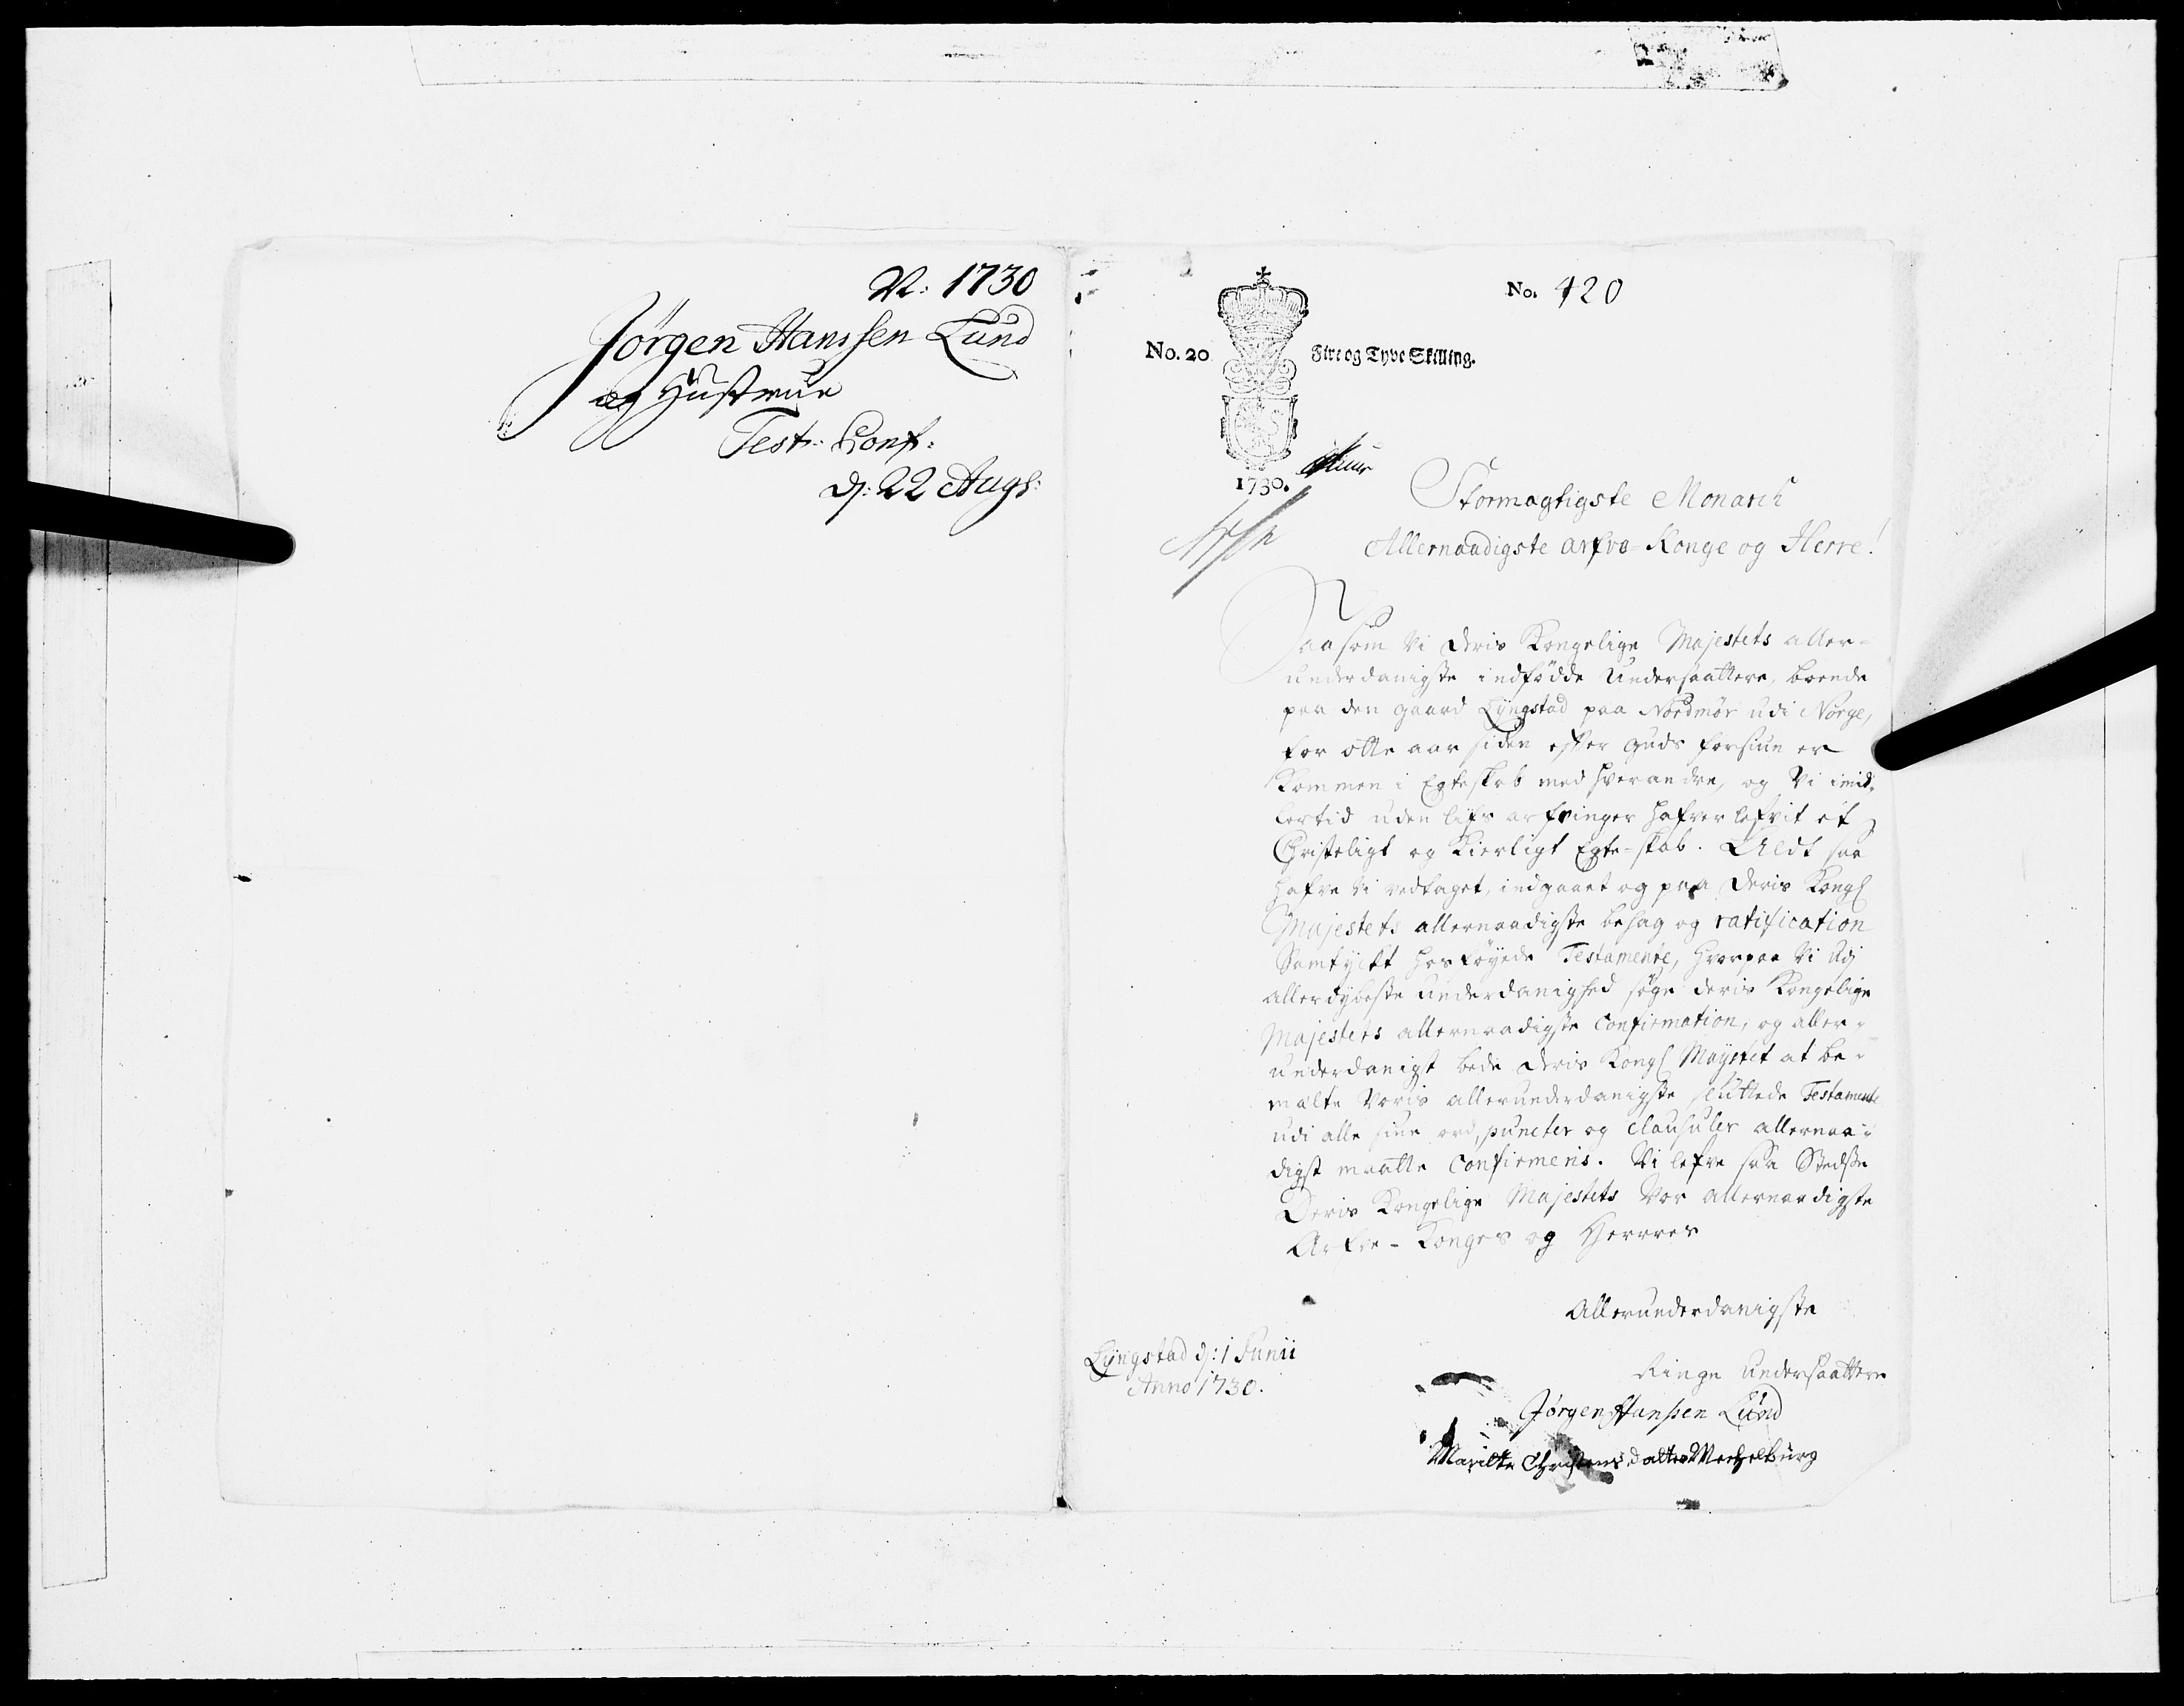 N: 1730
Jörgen Hanssen Lund
og Hustrue
Test: Conf:
d: 22 Augs:
No. 420
No. 20
Fire og Tyve Skilling.
1730.
Stormagtigste Monarch
Allernaadigste arfve-Konge og Herre!
Saasom Vi Deris Kongelige Majestets aller-
underdanigste indfödde Undersaattere, boende
paa den gaard Lÿngstad paa Nordmör udi Norge,
for otte aar siden efter Guds forsiun er
Kommen i Egteskab med hverandre, og Vi imid-
lertid uden lifs arfvinger hafver lefvit et
Christeligt og Kierligt Egte-skab. Altsaa
hafve Vi vedtaget, indgaaet og paa Deris Kongl
Majestets allernaadigste behag og ratification
Samtyckt hosföyede Testamente, hvorpaa Vi udj
allerdybeste underdanighed söge Deris Kongelige
Majestets allernaadigste Confirmation, og aller-
underdanigst bede Deris Kongl Mayestet at be-
mälte Voris allerunderdanigste sluttede Testamente
udi alle sine ord, puncter og clausuler allernaa-
digst maatte Confirmeris. Vi lefve saa Stedste
Deris Kongelige Majestets Vor allernaadigste
Arfve-Konges og Herrers
Allerunderdanigste
Ringe Undersaattere
Lÿngstad d: 1 Junii
Anno 1730.
Jörgen Hanssen Lund
Marilte Christens datter Mechelburg